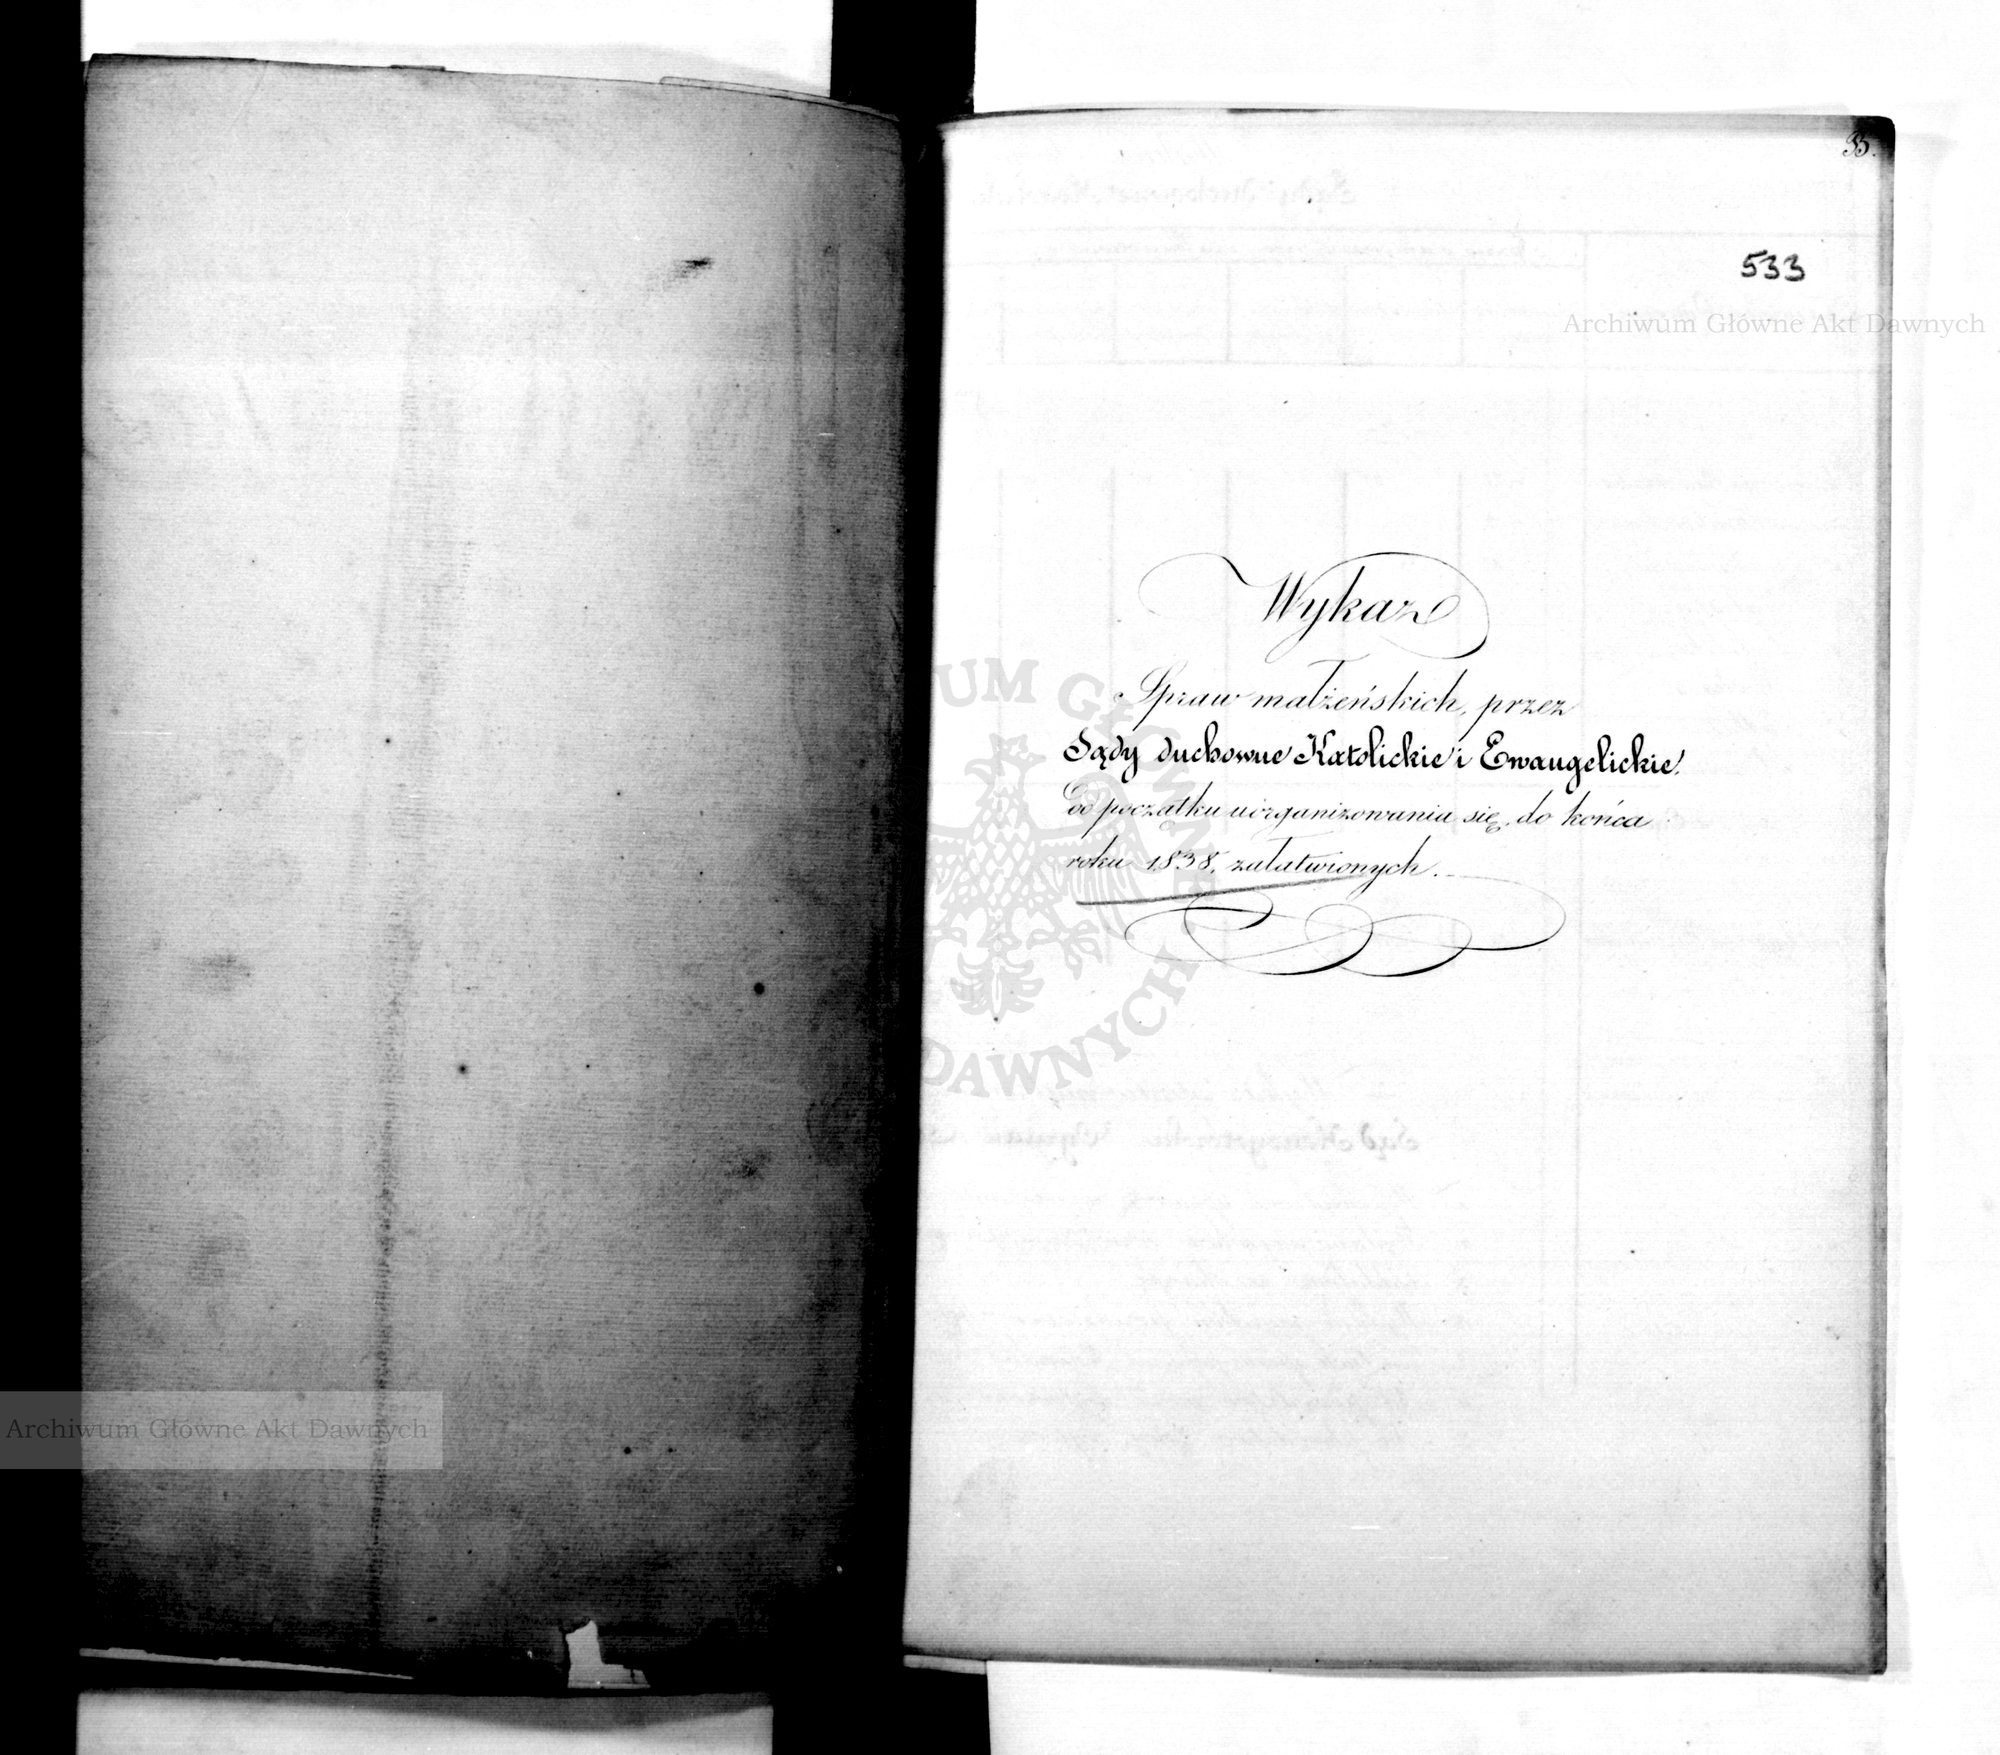 B.
533
Archiwum Główne Akt Dawnych
Wykaz
Spraw małżeńskich, przez
Sądy duchowne Katolickie i Ewangelickie.
od początku uorganizowania się, do końca
roku 1838, załatwionych.
UM GŁÓWNE
DAWNYCH
Archiwum Główne Akt Dawnych